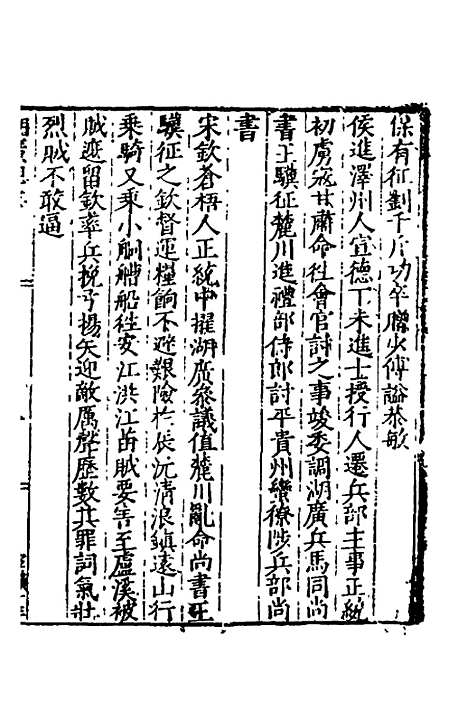 保有征剿千斤功卒贈少傅謚恭敏
侯進澤州人宣德丁未進士授行人遷兵部主事正統
初虜寇甘肅命往會官討之事竣委調湖廣兵馬同尚
書王驥征麓川進禮部侍郎討平貴州蠻獠陟兵部尚
書
宋欽蒼梧人正統中擢湖廣叅議值麓川亂命尚書王
驥征之欽督運糧餉不避艱險於辰沅清浪鎮遠山行
乘騎又乘小舸艚船徃安江洪江苗賊要害至盧溪被
賊遮留欽率兵挽弓揚矢迎敵厲聲歷數其罪詞氣壯
烈賊不敢逼